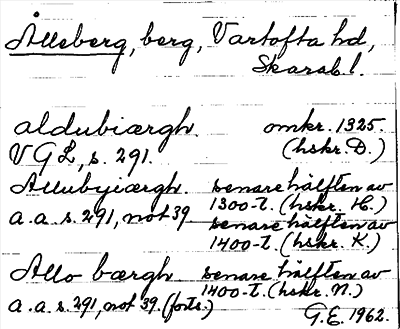 Ålleberg, berg, Vartofta hd,
Skarab.l.
aldubiærgh. omkr. 1325.
VGL, s. 291. (hskr. D.)
Allubyiærgh. senare hälften av
1300-t. (hskr. H.)
a.a. s. 291, not 39 senare hälften av
1400-t. (hskr. K.)
Allo bærgh senare hälften av
1400-t. (hskr. N.)
a.a. s. 291, not 39. (forts.)
G.E. 1962.